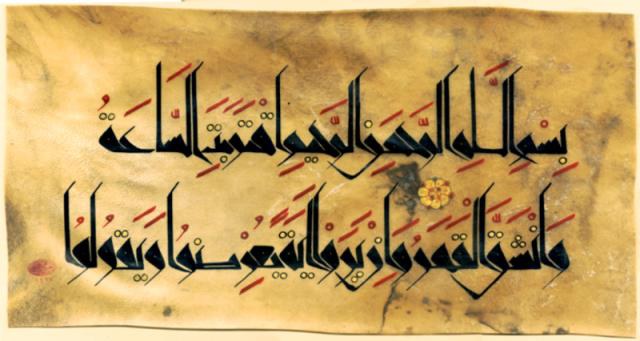 بِسْمِ اللَّهِ الرَّحْمَنِ الرَّحِيمِ اقْتَرَبَتِ السَّاعَةُ
وَانْشَقَّ الْقَمَرُ وَإِنْ يَرَوْا آيَةً يُعْرِضُوا وَيَقُولُوا